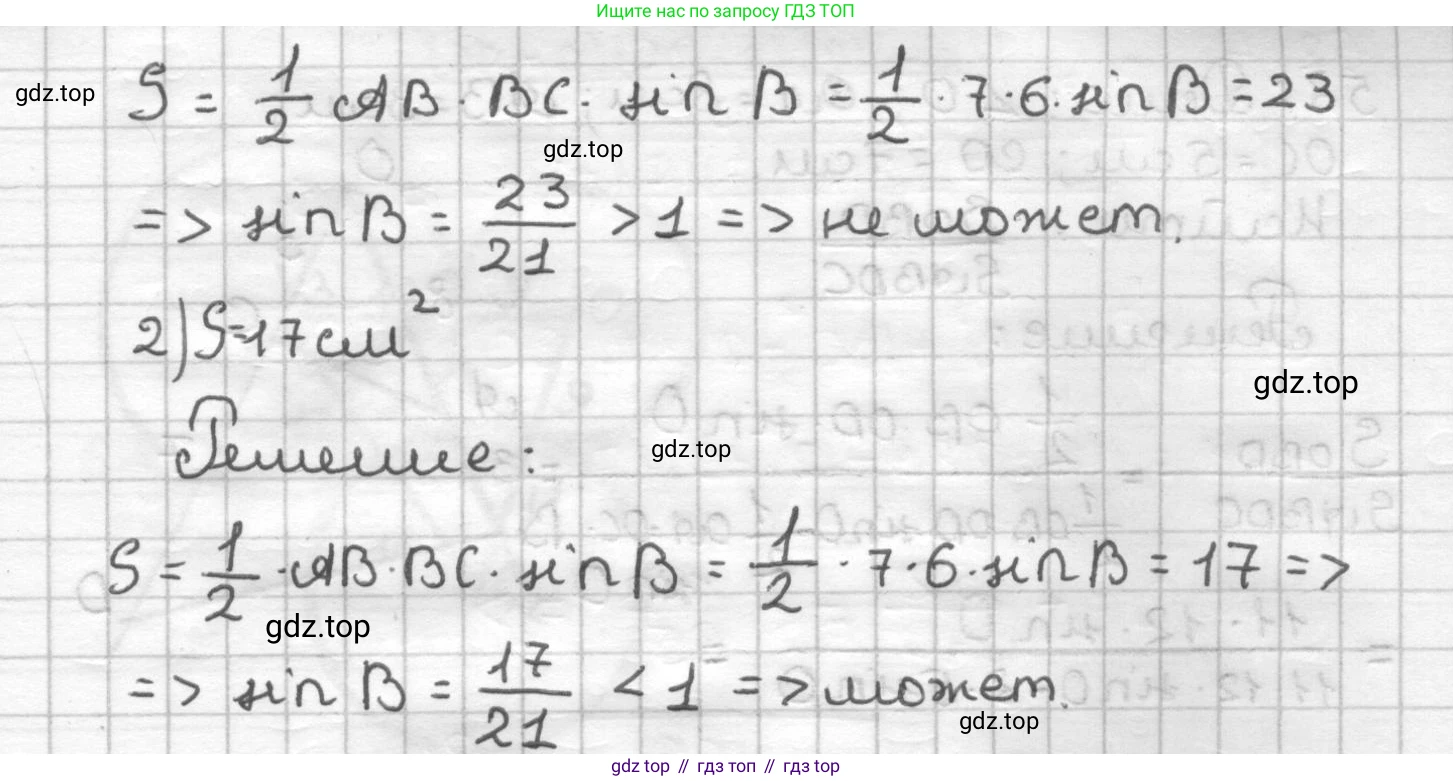 Ищите нас по запросу ГДЗ ТОП
S = 1/2 AB · BC · sin B = 1/2 · 7 · 6 · sin B = 23
gdz.top
gdz.top
=> sin B = 23/21 > 1 => не может.
2) S = 17 см²
gdz.top
Решение:
gdz.top
S = 1/2 · AB · BC · sin B = 1/2 · 7 · 6 · sin B = 17 =>
gdz.top
=> sin B = 17/21 < 1 => может.
gdz.top
gdz top // гдз топ // гдз top